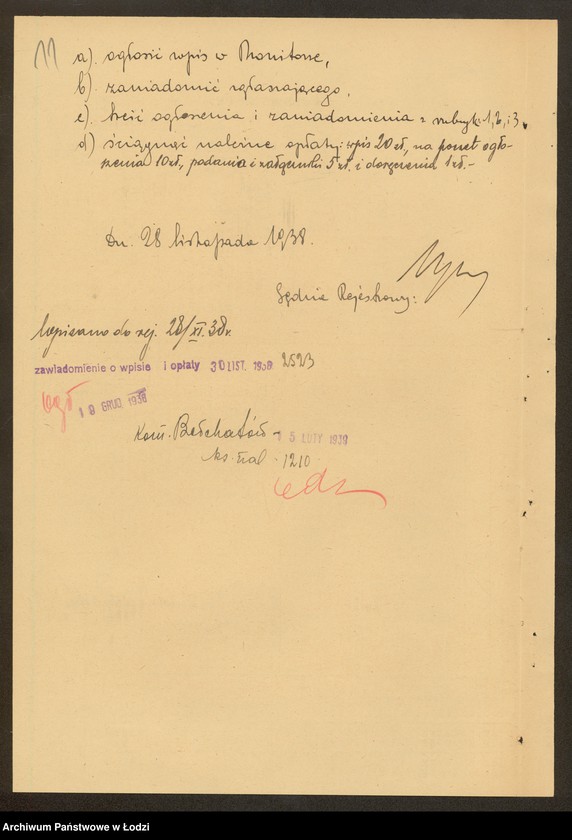 11
a). ogłosić wpis w Monitorze,
b). zawiadomić zgłaszającego,
c). treść ogłoszenia i zawiadomienia z rubryk: 1, 2, i 3.
d) ściągnąć należne opłaty: wpis 20 zł, na poczet ogło-
szenia 10 zł, podania i załączniki 5 zł. i doręczenia 1 zł.-
Dn. 28 listopada 1938.
Sędzia Rejestrowy:
Wpisano do rej. 28/XI. 38 r.
zawiadomienie o wpisie i opłaty 30 LIST. 1938 2523
ogł 19 GRUD. 1938
Kom. Bełchatów - 15 LUTY 1939
1210
Archiwum Państwowe w Łodzi